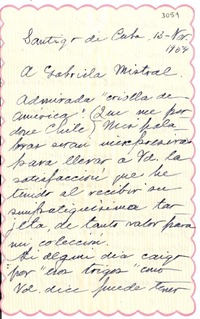 3059
Santiago de Cuba. 13-Nv.
A Gabriela Mistral.
Admirada "criolla de
America" (Que me per
done Chile) Mis pala
bras seran inexpresivas
para llevar a Vd. la
satisfacción que he
tenido al recibir su
simpatiquisima tar
jeta, de tanto valor para
mi coleccion.
Si algun dia caigo
por "esos trigos" como
Vd. dice puede tener